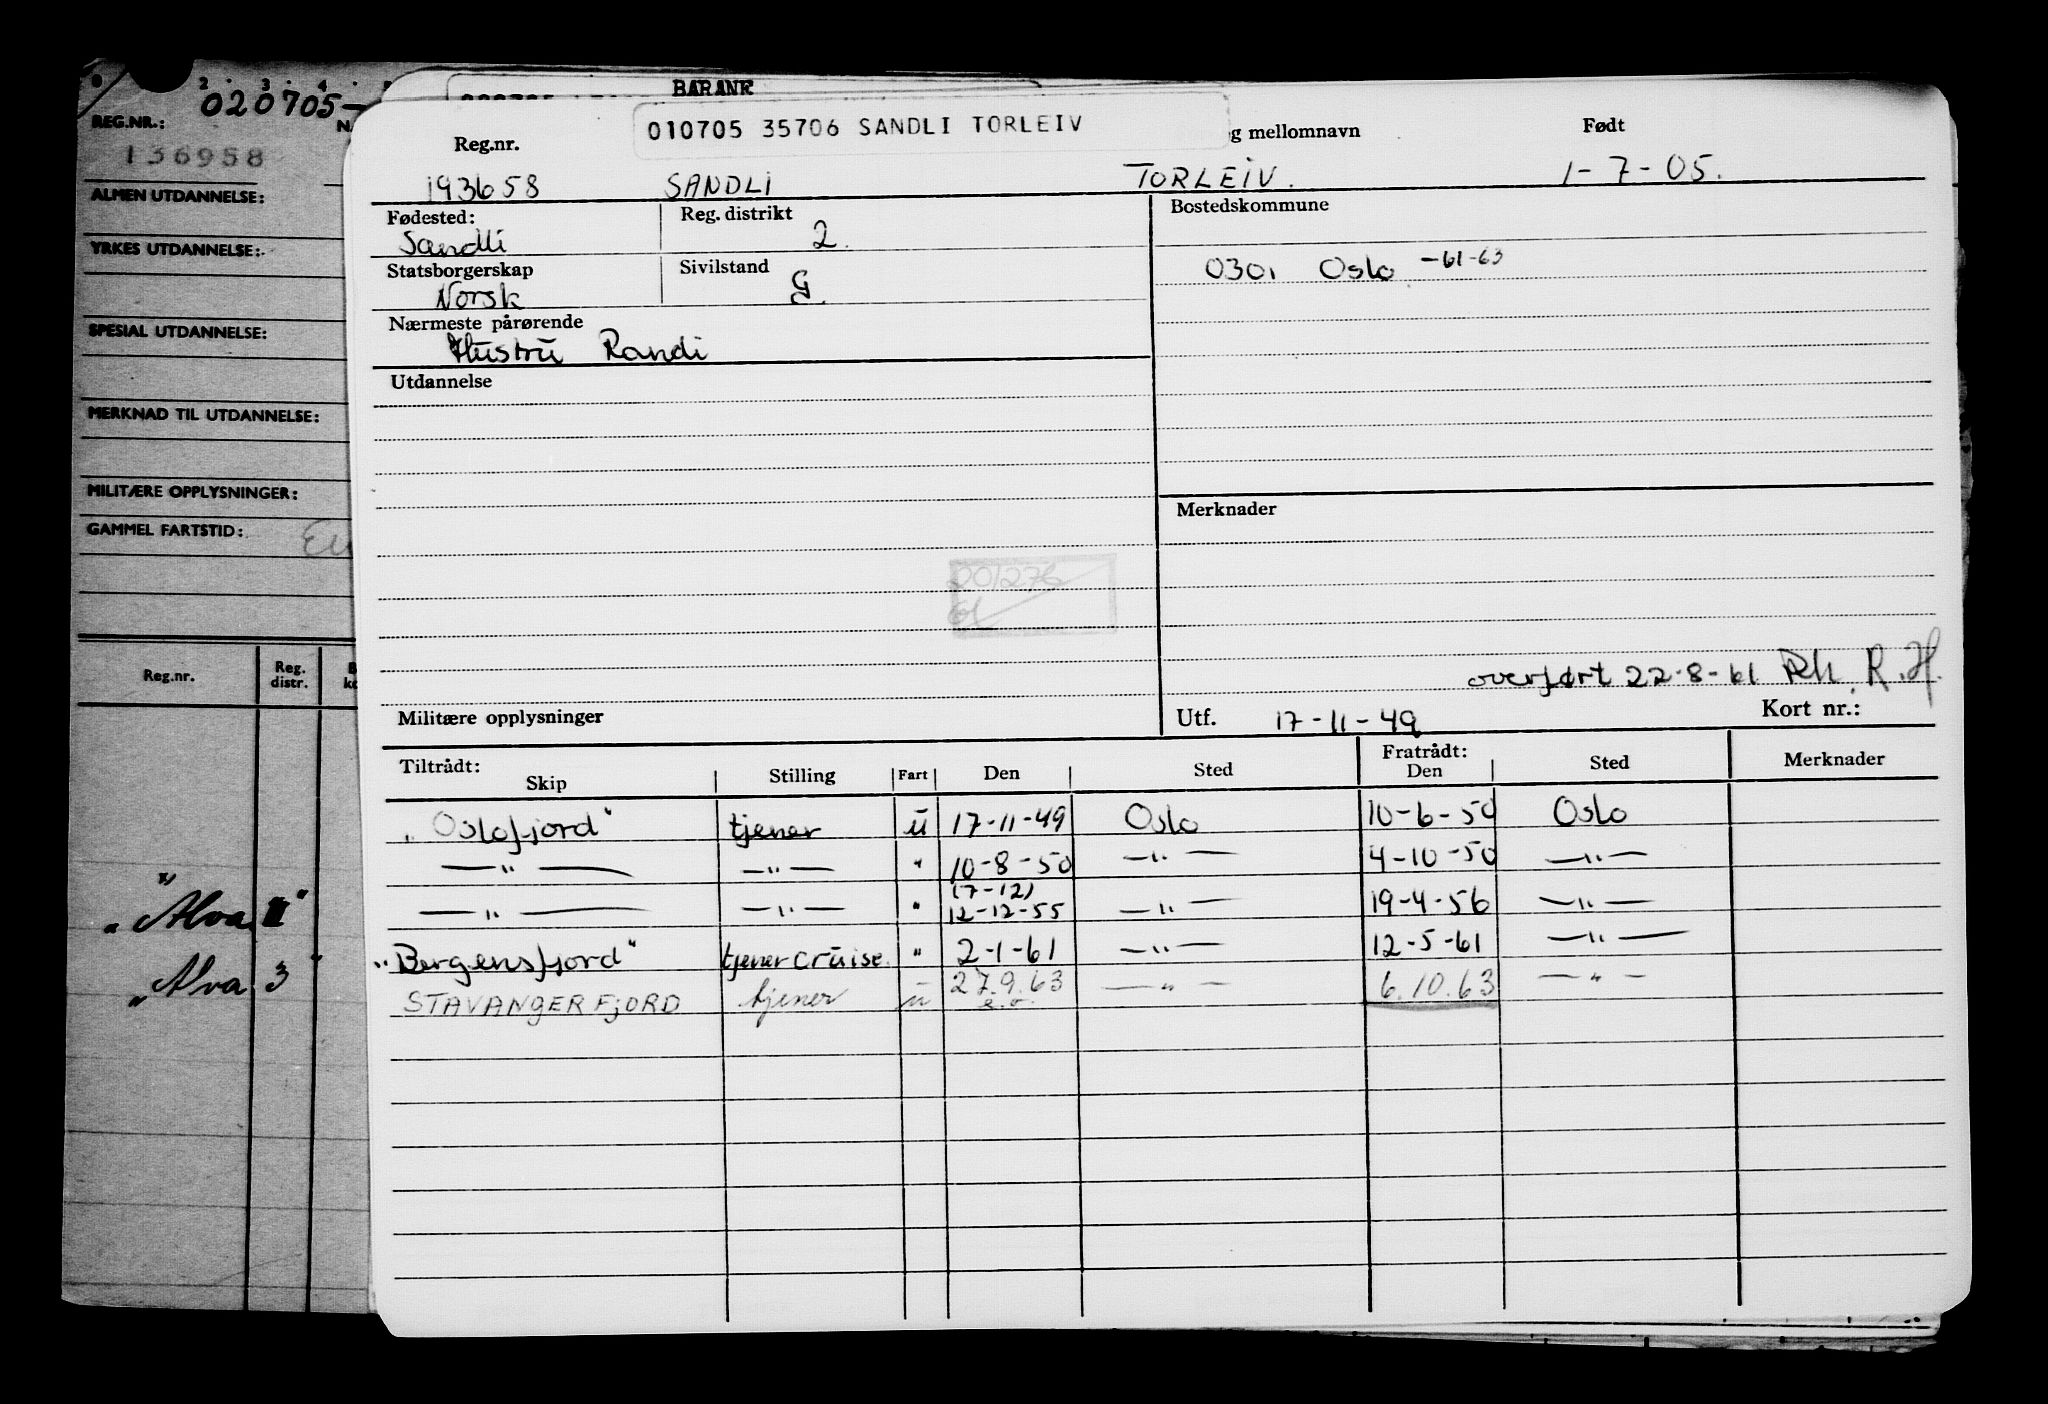 BARANK
020705-
REG.NR.:
136958
ALMEN UTDANNELSE:
YRKES UTDANNELSE:
SPESIAL UTDANNELSE:
MERKNAD TIL UTDANNELSE:
MILITÆRE OPPLYSNINGER:
GAMMEL FARTSTID:
Reg.nr. Reg. distr.
"Alva II"
"Alva 3"
010705 35706 SANDLI TORLEIV
Reg.nr. og mellomnavn Født
193658 SANDLI TORLEIV. 1-7-05.
Fødested: Reg. distrikt Bostedskommune
Sandli 2.
Statsborgerskap Sivilstand 0301 Oslo -61-63
Norsk G.
Nærmeste pårørende
Hustru Randi
Utdannelse
Merknader
001276
61
overført 22-8-61 R.H.
Militære opplysninger Utf. 17-11-49 Kort nr.:
Tiltrådt: Fratrådt:
Skip Stilling Fart Den Sted Den Sted Merknader
"Oslofjord" tjener u 17-11-49 Oslo 10-6-50 Oslo
—"— —"— " 10-8-50 —"— 4-10-50 —"—
(7-12)
—"— —"— " 12-12-55 —"— 19-4-56 —"—
"Bergensfjord" tjener cruise. " 2-1-61 —"— 12-5-61 —"—
STAVANGERFJORD tjener u 27.9.63 —"— 6.10.63 —"—